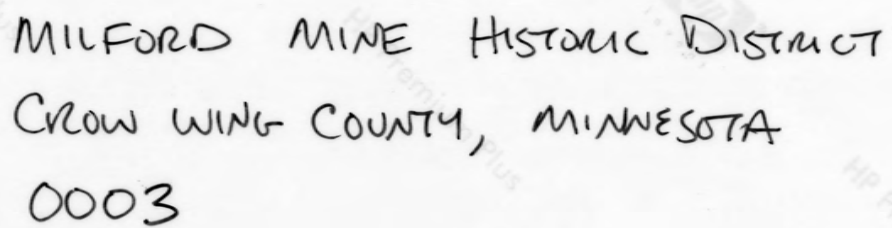 MILFORD MINE HISTORIC DISTRICT
CROW WING COUNTY, MINNESOTA
0003
HP Premium Plus